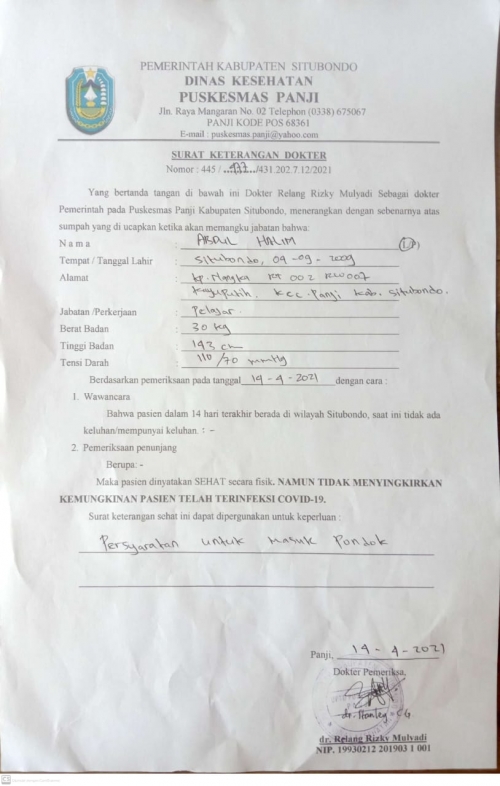 PEMERINTAH KABUPATEN SITUBONDO
DINAS KESEHATAN
PUSKESMAS PANJI
Jln. Raya Mangaran No. 02 Telephon (0338) 675067
PANJI KODE POS 68361
E-mail : puskesmas.panji@yahoo.com
SURAT KETERANGAN DOKTER
Nomor : 445 / /431.202.7.12/2021
Yang bertanda tangan di bawah ini Dokter Relang Rizky Mulyadi Sebagai dokter
Pemerintah pada Puskesmas Panji Kabupaten Situbondo, menerangkan dengan sebenarnya atas
sumpah yang di ucapkan ketika akan memangku jabatan bahwa:
N a m a : ABDUL HALIM (L/P)
Tempat / Tanggal Lahir : Situbondo, 04-09-2009
Alamat : kp. RT 002 RW 007
Kayuputih. Kec. Panji Kab. Situbondo.
Jabatan /Perkerjaan : Pelajar.
Berat Badan : 30 kg
Tinggi Badan : 143 cm
Tensi Darah : 110/70 mmHg
Berdasarkan pemeriksaan pada tanggal 14-4-2021 dengan cara :
1. Wawancara
Bahwa pasien dalam 14 hari terakhir berada di wilayah Situbondo, saat ini tidak ada
keluhan/mempunyai keluhan. : -
2. Pemeriksaan penunjang
Berupa: -
Maka pasien dinyatakan SEHAT secara fisik. NAMUN TIDAK MENYINGKIRKAN
KEMUNGKINAN PASIEN TELAH TERINFEKSI COVID-19.
Surat keterangan sehat ini dapat dipergunakan untuk keperluan :
Persyaratan untuk Masuk Pondok
Panji, 14-4-2021
Dokter Pemeriksa,
dr. Stanley CG
dr. Relang Rizky Mulyadi
NIP. 19930212 201903 1 001